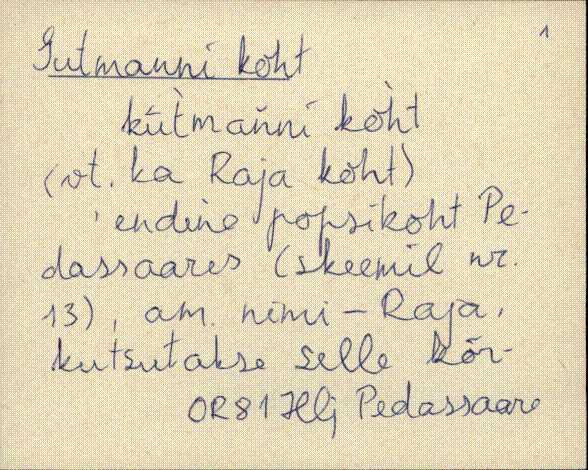 1
Gutmanni koht
kùtmaǹni kòht
(vt. ka Raja koht)
'endine popsikoht Pe-
dassaares (skeemil nr.
13), am. nimi – Raja,
kutsutakse selle kõr-
OR81 Hlj Pedassaare